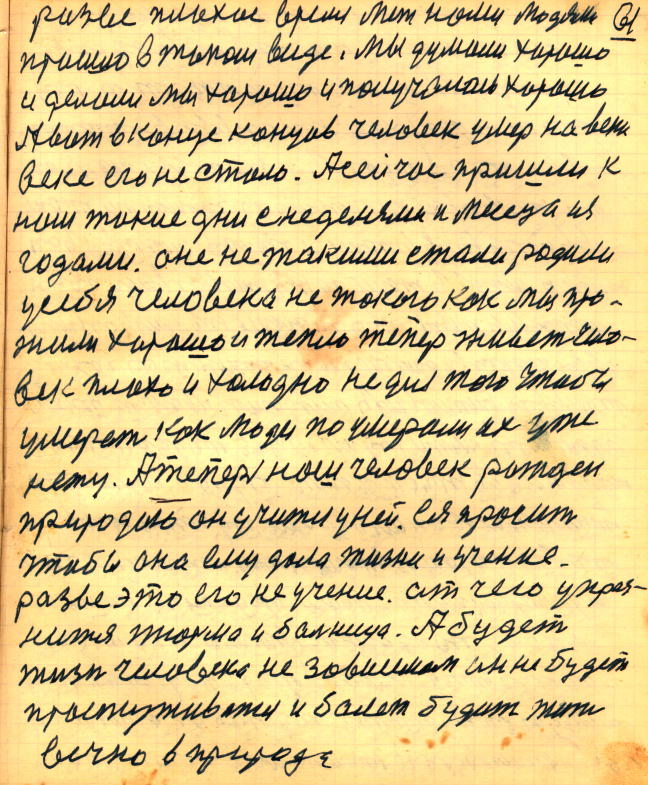 разве плохое время меж номи людьми 61
прошло в таком виде. Мы думали хорошо
и делали мы хорошо и получалось хорошо
А вот в конце концов человек умер на веки
веке его не стало. А сейчас пришли к
нам такие дни с неделями и месеца ия
годами. оне не такими стали родили
у себя человека не такого как мы про-
жили хорошо и тепло тепер живет чело-
век плохо и холодно не для того чтобы
умерет как люди по умерали их уже
нету. А тепер наш человек рожден
природаю он учится у ней. ея просит
чтобы она ему дала жизни и учение.
разве это его не учение. от чего упраз-
нится тюрма и болница. А будет
жизн человека не зовисимая он не будет
простуживатся и болет будит жить
вечно в природе